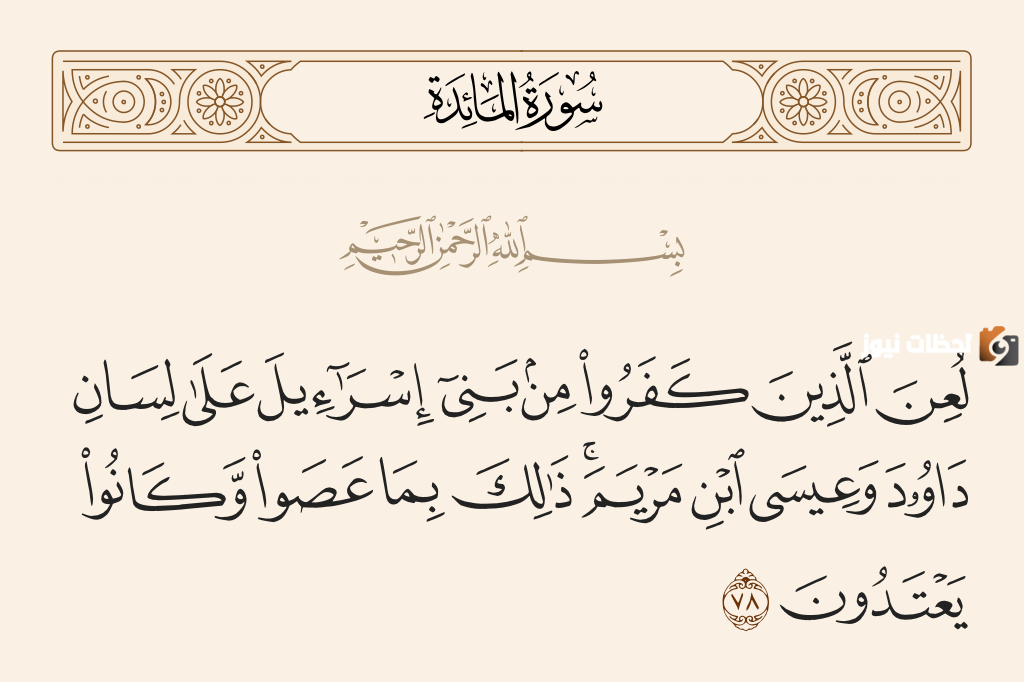 سُورَةُ المَائِدَةِ
بِسْمِ ٱللَّهِ ٱلرَّحْمَٰنِ ٱلرَّحِيمِ
لحظات نيوز
لُعِنَ ٱلَّذِينَ كَفَرُوا۟ مِنۢ بَنِىٓ إِسْرَٰٓءِيلَ عَلَىٰ لِسَانِ
دَاوُۥدَ وَعِيسَى ٱبْنِ مَرْيَمَ ۚ ذَٰلِكَ بِمَا عَصَوا۟ وَّكَانُوا۟
يَعْتَدُونَ ٧٨